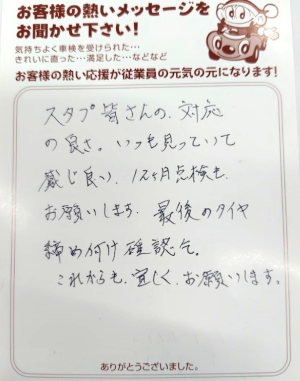 お客様の熱いメッセージを
お聞かせ下さい!
気持ちよく車検を受けられた…
きれいに直った…満足した…などなど
お客様の熱い応援が従業員の元気の元になります!
スタフ皆さんの、対応
の良さ。いつも見っていて
感じ良い、12ヶ月点検も、
お願いします、最後のタイヤ
締め付け確認も。
これからも、宜しく、お願いします。
ありがとうございました。